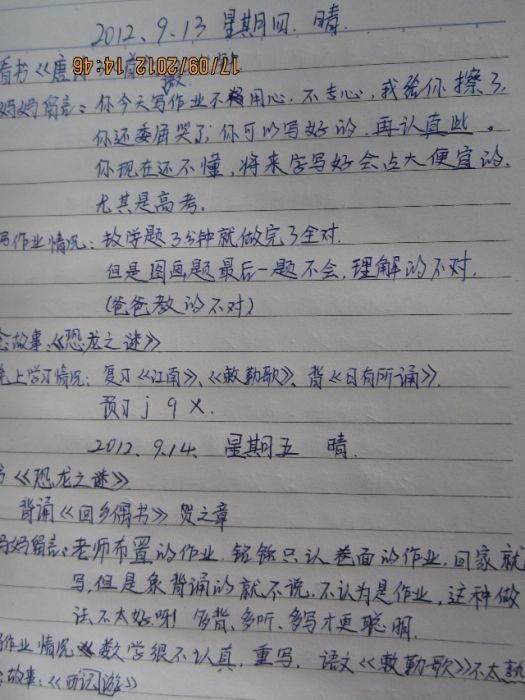 2012、9.13 星期四. 晴.
看书《唐
17/09/2012 14:46
妈妈留言：你今天写作业不够用心，不专心，我给你擦了，
你还委屈哭了，你可以写好的，再认真些。
你现在还不懂，将来字写好会占大便宜的，
尤其是高考。
写作业情况：数学题3分钟就做完了全对.
但是图画题最后一题不会，理解的不对，
(爸爸教的不对)
念故事：《恐龙之谜》
晚上学习情况：复习《江南》、《敕勒歌》、背《日有所诵》.
预习 j q x.
2012、9.14、 星期五 晴.
书《恐龙之谜》
背诵《回乡偶书》贺之章
妈妈留言：老师布置的作业，铭铭只认卷面的作业，回家就
写，但是象背诵的就不说，不认为是作业，这种做
法不太好呀！多背、多听、多写才更聪明.
作业情况：数学很不认真，重写. 语文《敕勒歌》不太熟
故事：《西游》